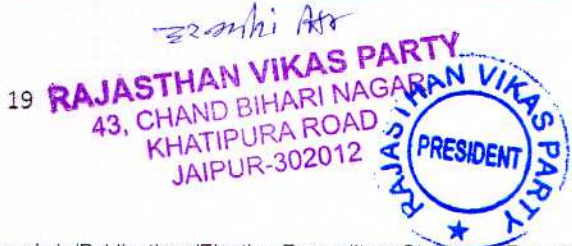 19 RAJASTHAN VIKAS PARTY
43, CHAND BIHARI NAGAR
KHATIPURA ROAD
JAIPUR-302012
RAJASTHAN VIKAS PARTY
PRESIDENT